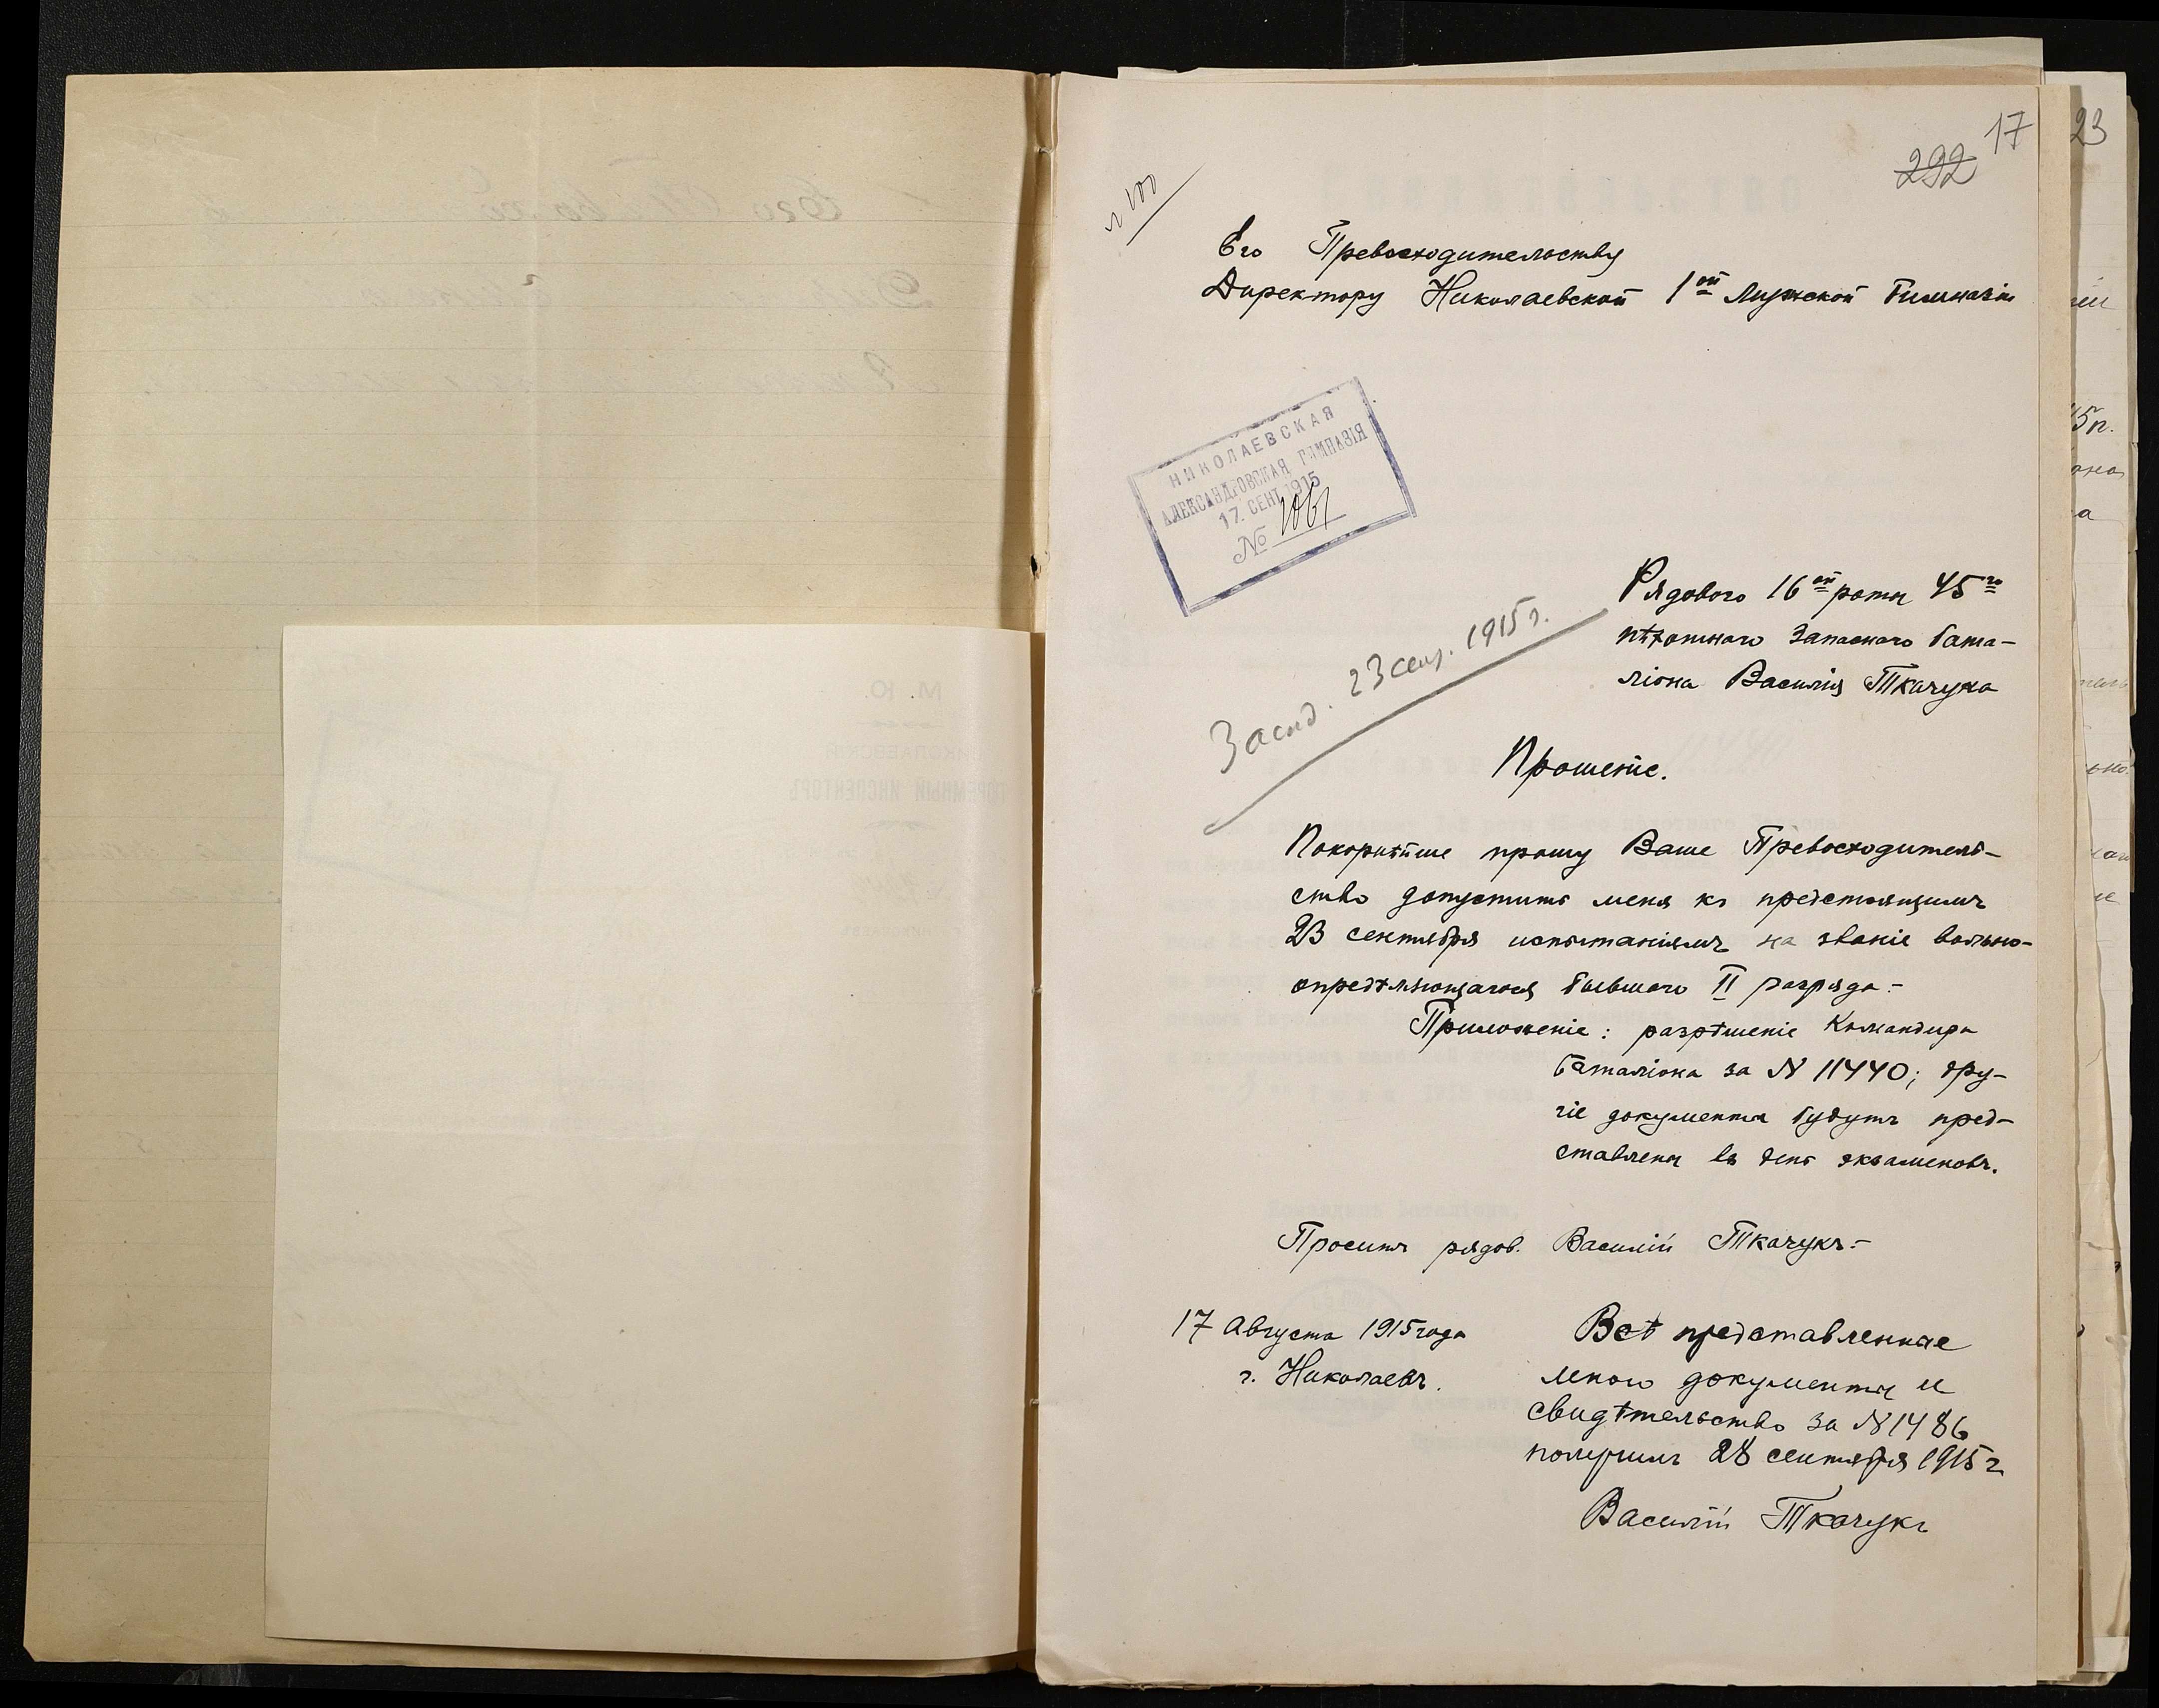 17
292
23
Его Превосходительству
Директору Николаевской 1ой Мужской Гимназіи
НИКОЛАЕВСКАЯ
АЛЕКСАНДРОВСКАЯ ГИМНАЗІЯ
17. СЕНТ. 1915
№ 1061
Рядового 16ой роты 45го
пѣхотнаго Запаснаго бата-
ліона Василія Ткачука
23 сент. 1915 г.
Прошеніе.
Покорнѣйше прошу Ваше Превосходитель-
ство допустить меня къ предстоящимъ
23 сентября испытаніямъ на званіе вольно-
опредѣляющагося бывшаго II разряда.-
Приложеніе: разрѣшеніе Командира
баталіона за N 11440; дру-
гіе документы будутъ пред-
ставлены въ день экзаменовъ.
Проситъ рядов. Василій Ткачукъ.-
17 Августа 1915 года
г. Николаевъ.
Всѣ представленные
мною документы и
свидѣтельство за N 1486
получилъ 28 сентября 1915 г
Василій Ткачукъ